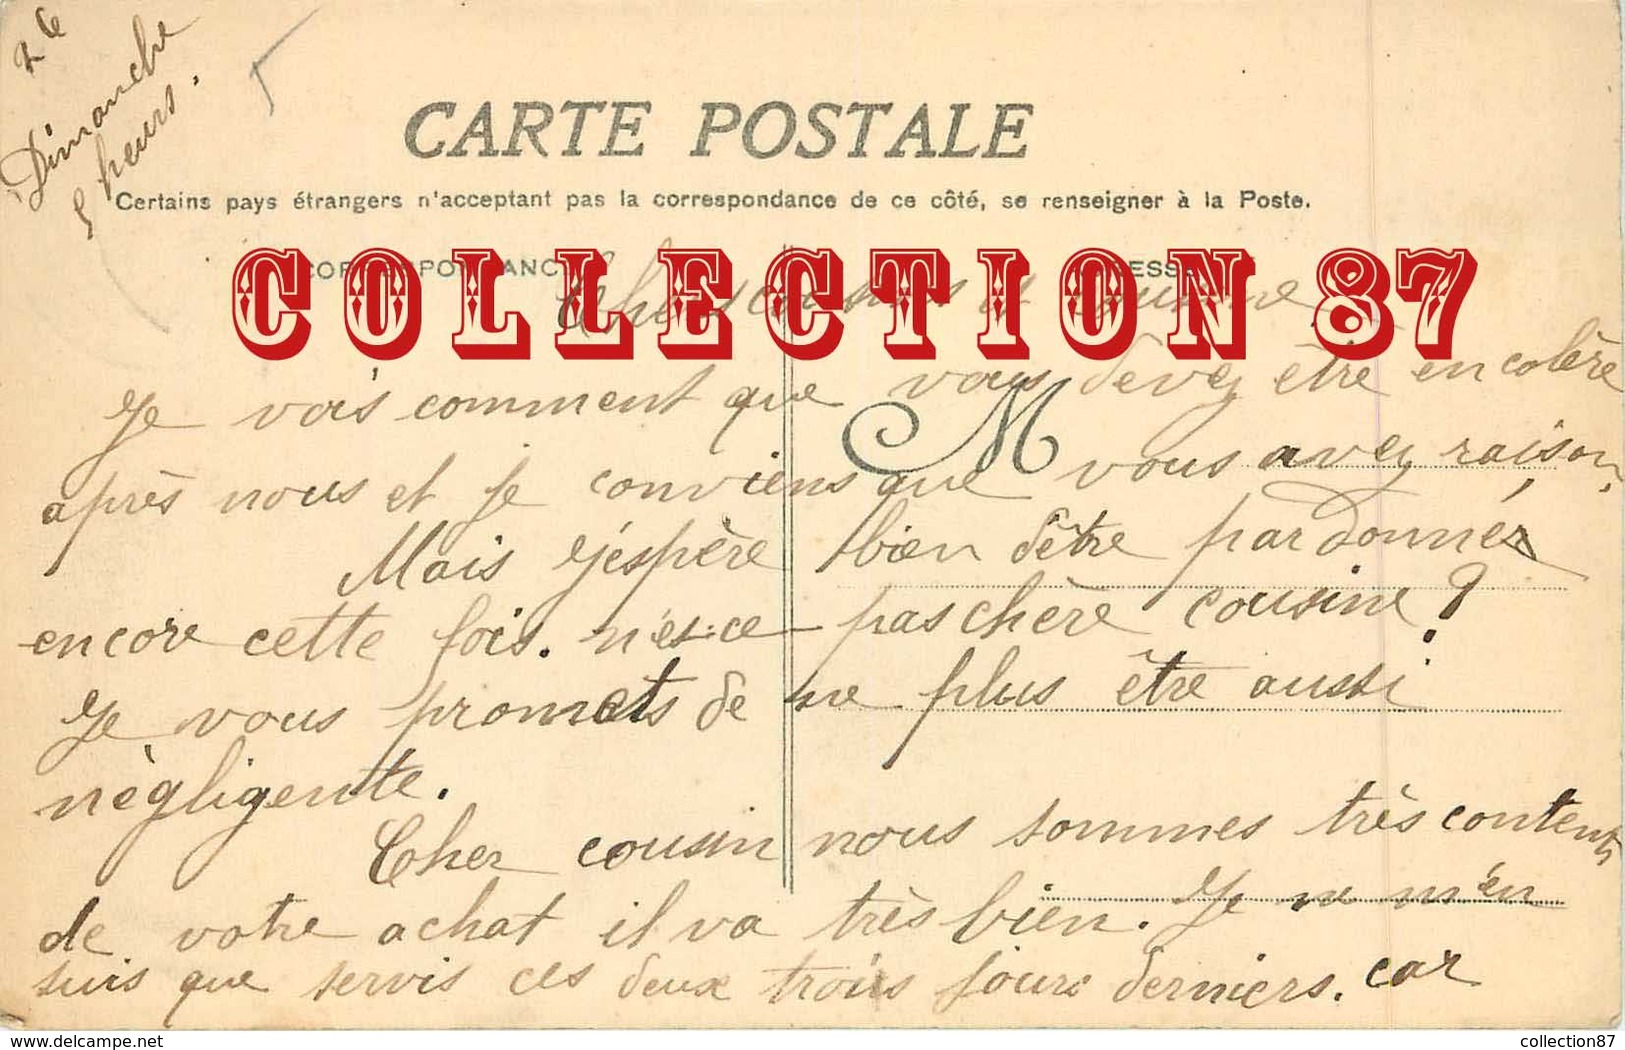 26
Dimanche
5 heurs.
CARTE POSTALE
Certains pays étrangers n'acceptant pas la correspondance de ce côté, se renseigner à la Poste.
CORRESPONDANCE ADRESSE
COLLECTION 87
Chers cousins et cousine
Je vois comment que vous devez être en colère
M
après nous et je conviens que vous avez raison,
Mais j'éspère bien d'être pardonnés
encore cette fois. n'es-ce pas chère cousine?
Je vous promets de ne plus être aussi
négligente.
Cher cousin nous sommes très contents
de votre achat il va très bien. Je ne m'en
suis que servis ces deux trois jours derniers. car
delcampe.net
collection87